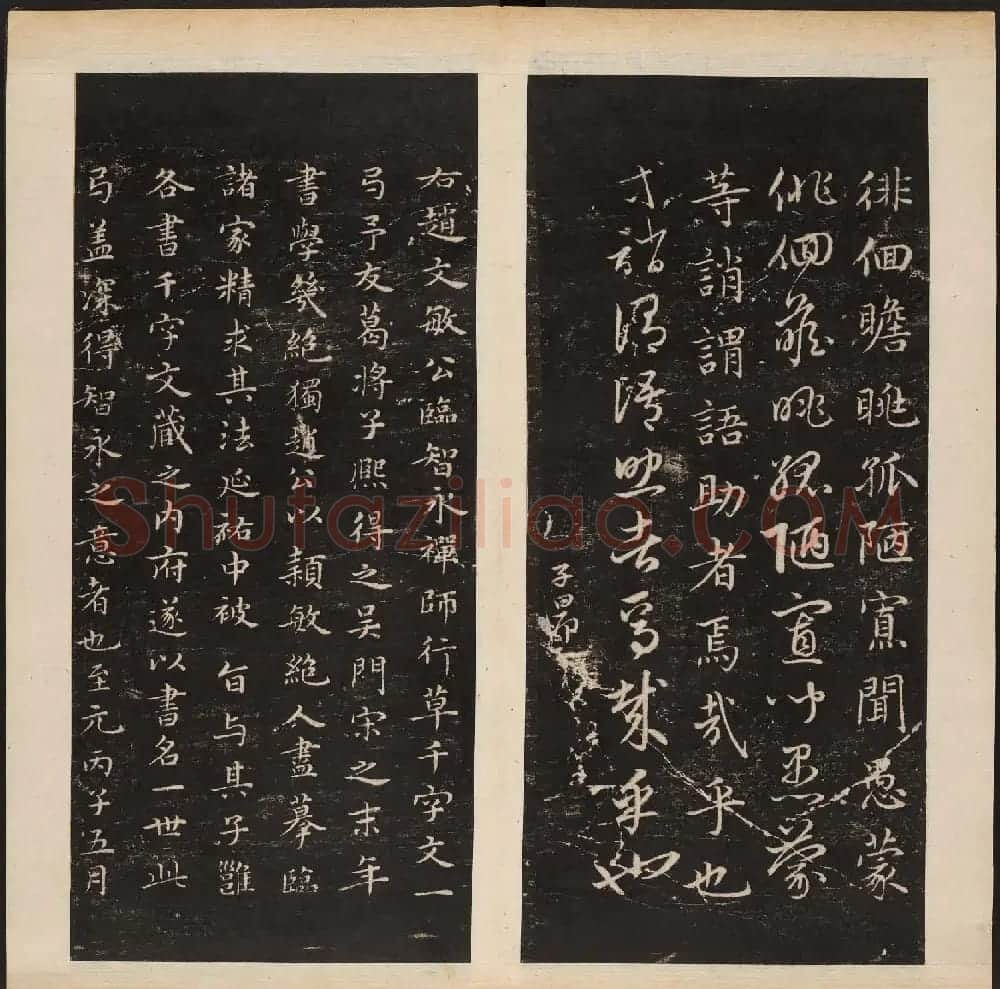 徘徊瞻眺孤陋寡聞愚蒙
徘徊瞻眺孤陋寡聞愚蒙
等誚謂語助者焉哉乎也
等誚謂語助者焉哉乎也
子昂
右趙文敏公臨智永禪師行草千字文一
弓予友葛將子熙得之吴門宋之末年
書學幾絶獨趙公以穎敏絶人盡摹臨
諸家精求其法延祐中被 旨与其子雝
各書千字文藏之内府遂以書名一世此
弓盖深得智永之意者也至元丙子五月
Shufaziliao.COM